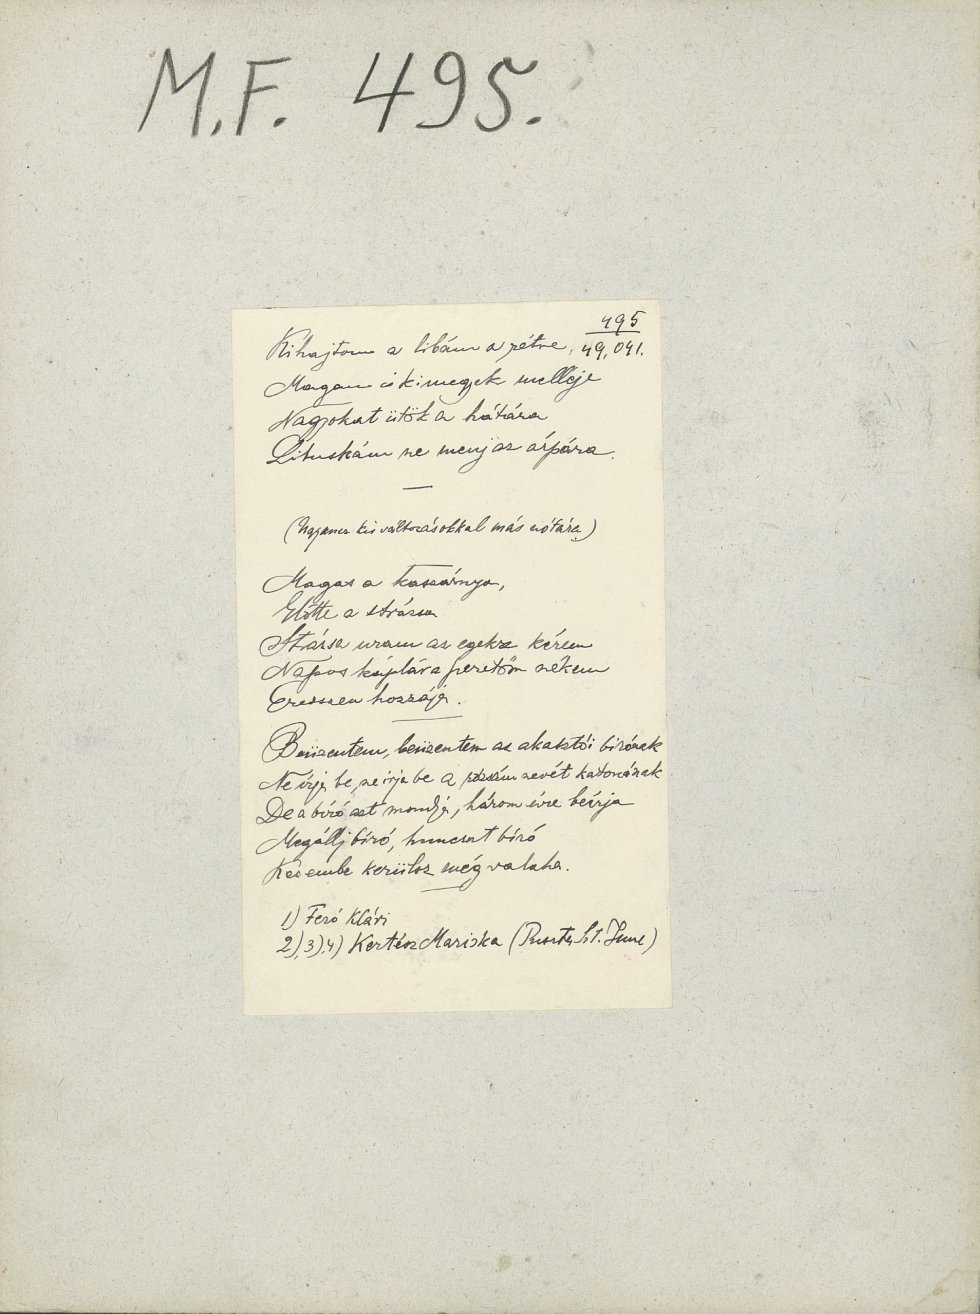 M.F. 495.
495
49,041.
Kihajtom a libám a rétre,
Magam is kimegyek melléje
Nagyokat ütök a hátára
Libuskám ne menj az árpára.
(Ugyanez kis változásokkal más nótára)
Magas a kaszárnya,
Előtte a strázsa
Strázsa uram az egekre kérem
Napos káplár a szeretőm nékem
Eresszen hozzája.
Beüzentem, beüzentem az akasztói bírónak
Ne írja be, ne írja be a rózsám nevét katonának
De a bíró azt mondja, három évre beírja
Megállj bíró, huncut bíró
Kezembe kerülsz még valaha.
1) Feró Klári
2), 3), 4) Kertész Mariska (Puszta, St. Imre)